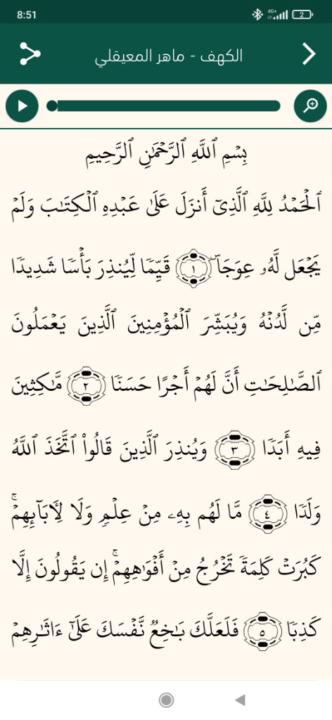 8:51
2
الكهف - ماهر المعيقلي
بِسْمِ ٱللَّهِ ٱلرَّحْمَٰنِ ٱلرَّحِيمِ
ٱلْحَمْدُ لِلَّهِ ٱلَّذِىٓ أَنزَلَ عَلَىٰ عَبْدِهِ ٱلْكِتَٰبَ وَلَمْ
يَجْعَل لَّهُۥ عِوَجَاۜ ١ قَيِّمًا لِّيُنذِرَ بَأْسًا شَدِيدًا
مِّن لَّدُنْهُ وَيُبَشِّرَ ٱلْمُؤْمِنِينَ ٱلَّذِينَ يَعْمَلُونَ
ٱلصَّٰلِحَٰتِ أَنَّ لَهُمْ أَجْرًا حَسَنًا ٢ مَّٰكِثِينَ
فِيهِ أَبَدًا ٣ وَيُنذِرَ ٱلَّذِينَ قَالُوا۟ ٱتَّخَذَ ٱللَّهُ
وَلَدًا ٤ مَّا لَهُم بِهِۦ مِنْ عِلْمٍ وَلَا لِءَابَآئِهِمْۚ
كَبُرَتْ كَلِمَةً تَخْرُجُ مِنْ أَفْوَٰهِهِمْۚ إِن يَقُولُونَ إِلَّا
كَذِبًا ٥ فَلَعَلَّكَ بَٰخِعٌ نَّفْسَكَ عَلَىٰٓ ءَاثَٰرِهِمْ